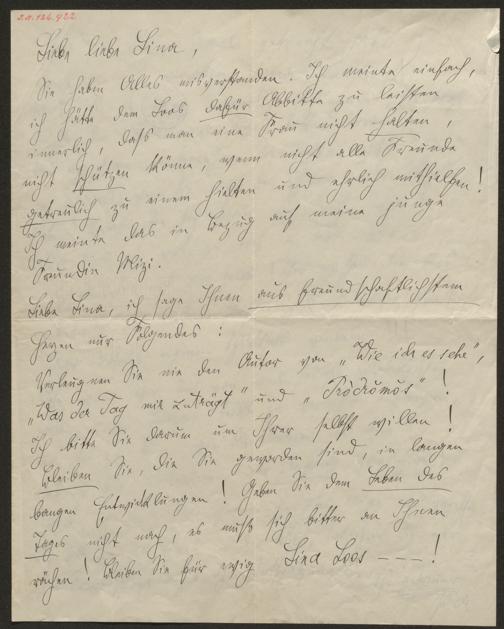 I.N. 126.922
Liebe liebe Lina,
Sie haben Alles misverstanden. Ich meinte einfach,
ich hätte dem Loos dafür Abbitte zu leisten
innerlich, dass man eine Frau nicht halten,
nicht schützen könne, wenn nicht alle Freunde
getreulich zu einem hielten und ehrlich mithielfen!
Ich meinte das in Bezug auf meine junge
Freundin Mizi.
Liebe Lina, ich sage Ihnen aus freundschaftlichstem
Herzen nur Folgendes:
Verleugnen Sie nie den Autor von „Wie ich es sehe",
„Was der Tag mir zuträgt" und „Pròdrŏmŏs"!
Ich bitte Sie darum um Ihrer selbst willen!
Bleiben Sie, die Sie geworden sind, in langen
bangen Entwicklungen! Geben Sie dem Leben des
Tages nicht nach, es muss sich bitter an Ihnen
rächen! Bleiben Sie für ewig Lina Loos ———!